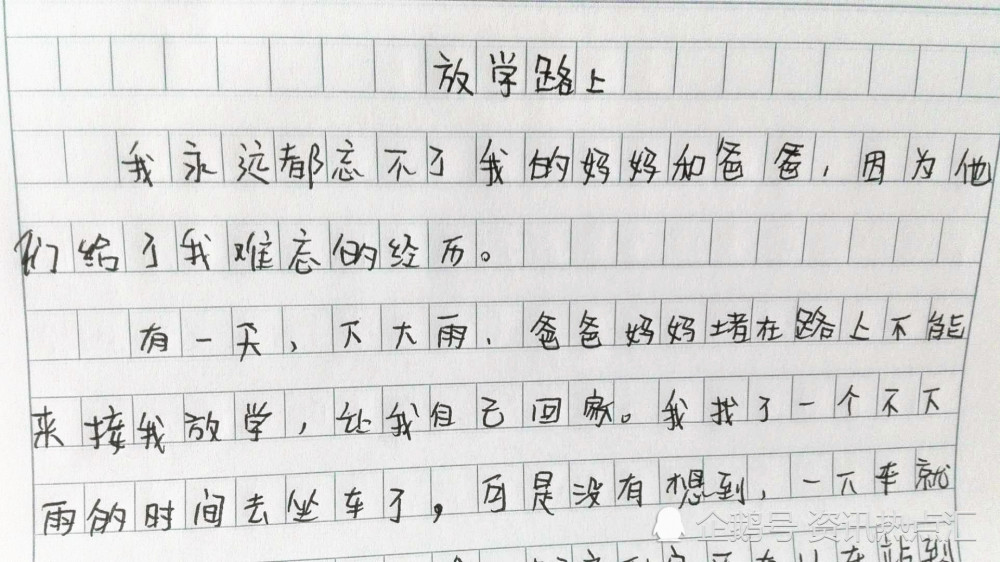 放学路上
我永远都忘不了我的妈妈和爸爸,因为他
们给了我难忘的经历。
有一天,下大雨,爸爸妈妈堵在路上不能
来接我放学,让我自己回家。我找了一个不下
雨的时间去坐车了,可是没有想到,一下车就
企鹅号 资讯热点汇